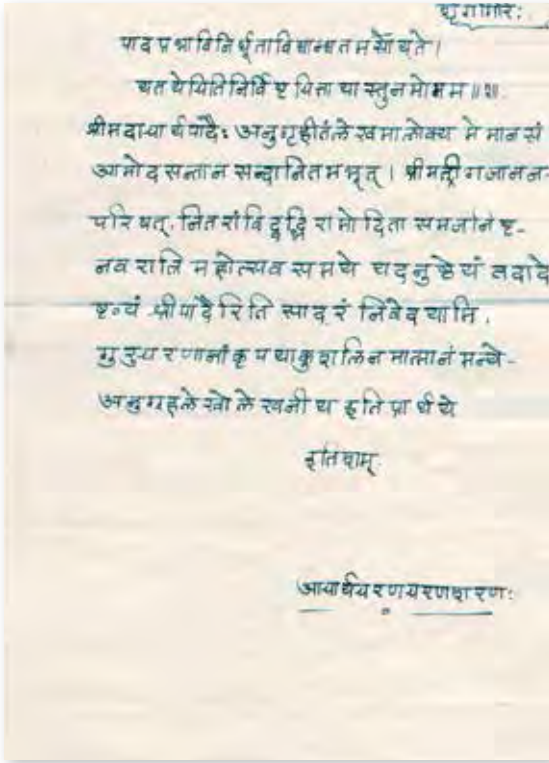 शृंगगिरिः
पादप्रभाविनिर्धूताविद्यान्धतमसोच्चते।
यतयेयितिनिर्विष्टयित्तायास्तुनमोमम॥१॥
श्रीमदाचार्यपादैः अनुगृहीतंलेखमालोक्य मे मानसं
आमोदसन्तानसन्दानितमभूत्। श्रीमद्गीगजानन-
परिषत्. नितरांविद्वद्भिरामोदिता समजनि
नवरात्रि महोत्सव समये यदनुष्ठेयं तदादे
ष्टव्यं श्रीपादैरिति सादरं निवेदयामि.
गुरुचरणानांकृपयाकुशलिनमात्मानं मन्ये-
अनुग्रहलेखोलेखनीय इति प्रार्थये
इतिशम्
आचार्यचरणचरणशरणः